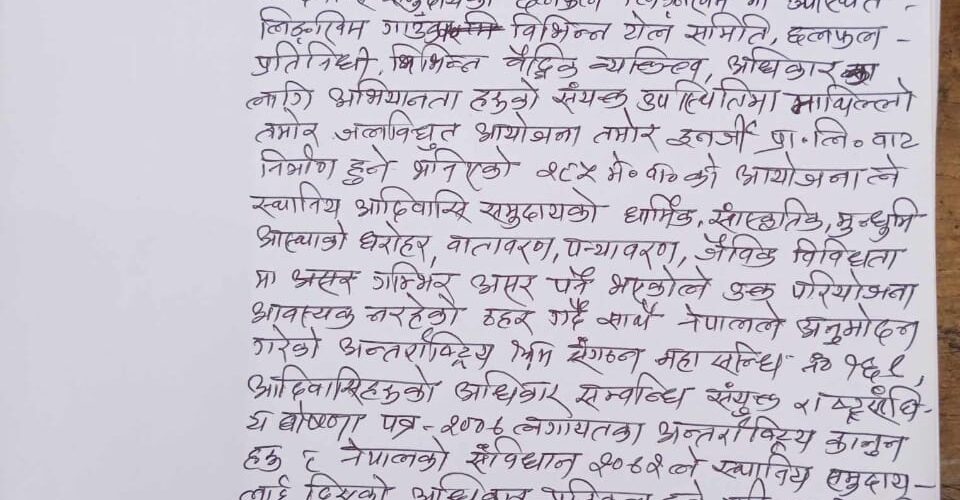 लिङ्गखिम गाउँका विभिन्न टोल समिति, छलफल -
प्रतिनिधी, विभिन्न वैद्धिक व्यक्तित्व, अधिकार का
लागि अभियानता हरुको संयक्त उपस्थितिमा माथिल्लो
तमोर जलविधुत आयोजना तमोर इनर्जी प्रा॰लि॰ वाट
निर्माण हुने भनिएको २८५ मे॰ वा॰ को आयोजना ले
स्थानिय आदिवासि समुदायको धार्मिक, सांस्कृतिक, मुन्धुमि
आस्थाको धरोहर, वातावरण, पर्यावरण, जैविक विविधता
मा असर गम्भिर असर पर्ने भएकोले उक्त परियोजना
आवस्यक नरहेको ठहर गर्दै साथै नेपालले अनुमोदन
गरेको अन्तर्राष्ट्रिय श्रम संगठन महा सन्धि नं० १६९,
आदिवासिहरुको अधिकार सम्वन्धि संयुक्त राष्ट्रसंघि-
य घोषणा पत्र - २००७ लगायतका अन्तर्राष्ट्रिय कानुन
हरु र नेपालको संविधान २०७२ ले स्थानिय समुदाय -
लाई दिएको अधिकार